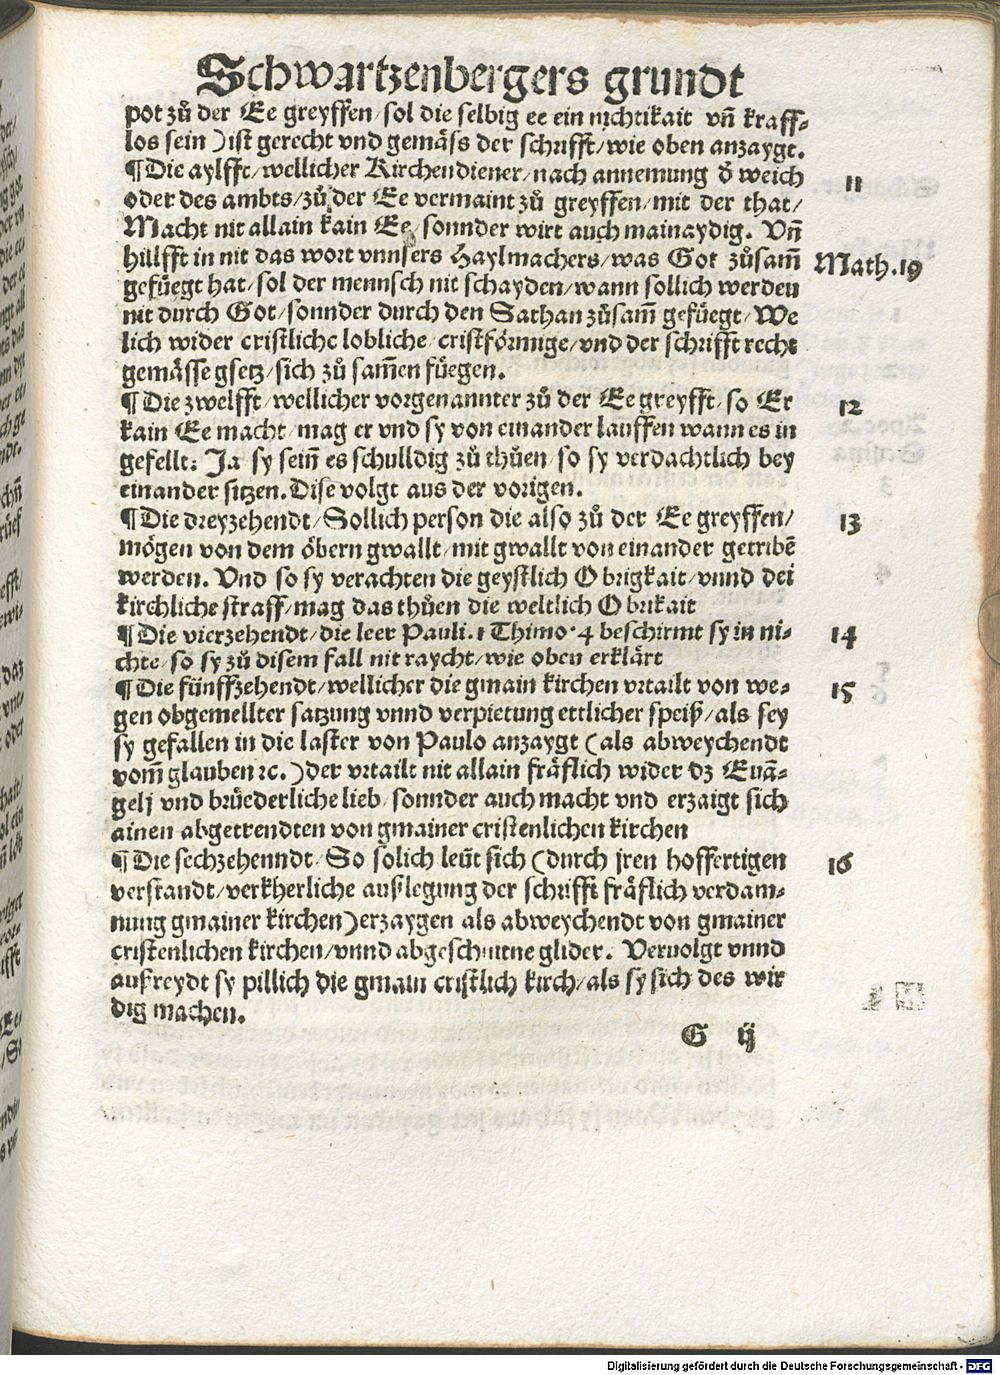 Schwartzenbergers grundt
pot zů der Ee greyffen/sol die selbig ee ein nichtikait vñ kraff⸗
los sein) ist gerecht vnd gemäss der schrifft/wie oben anzaygt.
¶Die aylfft/wellicher Kirchendiener/nach annemung d̄ weich
11
oder des ambts/zů der Ee vermaint zů greyffen/mit der that/
Macht nit allain kain Ee/sonnder wirt auch mainaydig. Vñ
hillfft in nit das wort vnnsers Haylmachers/was Got zůsam̄
Math.19
gefüegt hat/sol der mennsch nit schayden/wann sollich werden
nit durch Got/sonnder durch den Sathan zůsam̄ gefüegt/We
lich wider cristliche lobliche/cristförmige/vnd der schrifft recht
gemässe gsetz/sich zů sam̄en füegen.
¶Die zwelfft/wellicher vorgenannter zů der Ee greyfft/so Er
12
kain Ee macht/mag er vnd sy von einander lauffen wann es in
gefellt: Ja sy sein̄ es schulldig zů thůen so sy verdachtlich bey
einander sitzen. Dise volgt aus der vorigen.
¶Die dreyzehendt/Sollich person die also zů der Ee greyffen/
13
mögen von dem öbern gwallt/mit gwallt von einander getribē
werden. Vnd so sy verachten die geystlich Obrigkait/vnnd dei
kirchliche straff/mag das thůen die weltlich Obrikait
¶Die vierzehendt/die leer Pauli.1 Thimo.4 beschirmt sy in ni⸗
14
chte/so sy zů disem fall nit raycht/wie oben erklärt
¶Die fünffzehendt/wellicher die gmain kirchen vrtailt von we⸗
15
gen obgemellter satzung vnnd verpietung ettlicher speiß/als sey
sy gefallen in die laster von Paulo anzaygt (als abweychendt
vom̄ glauben ꝛc.) der vrtailt nit allain fräflich wider dz Euā⸗
gelj vnd brüederliche lieb/sonnder auch macht vnd erzaigt sich
ainen abgetrendten von gmainer cristenlichen kirchen
¶Die sechzehenndt/So solich leüt sich (durch jren hoffertigen
16
verstandt/verkherliche außlegung der schrifft fräflich verdam⸗
nung gmainer kirchen) erzaygen als abweychendt von gmainer
cristenlichen kirchen/vnnd abgeschnitne glider. Veruolgt vnnd
außreydt sy pillich die gmain cristlich kirch/als sy sich des wir
dig machen.
G ij
Digitalisierung gefördert durch die Deutsche Forschungsgemeinschaft - DFG